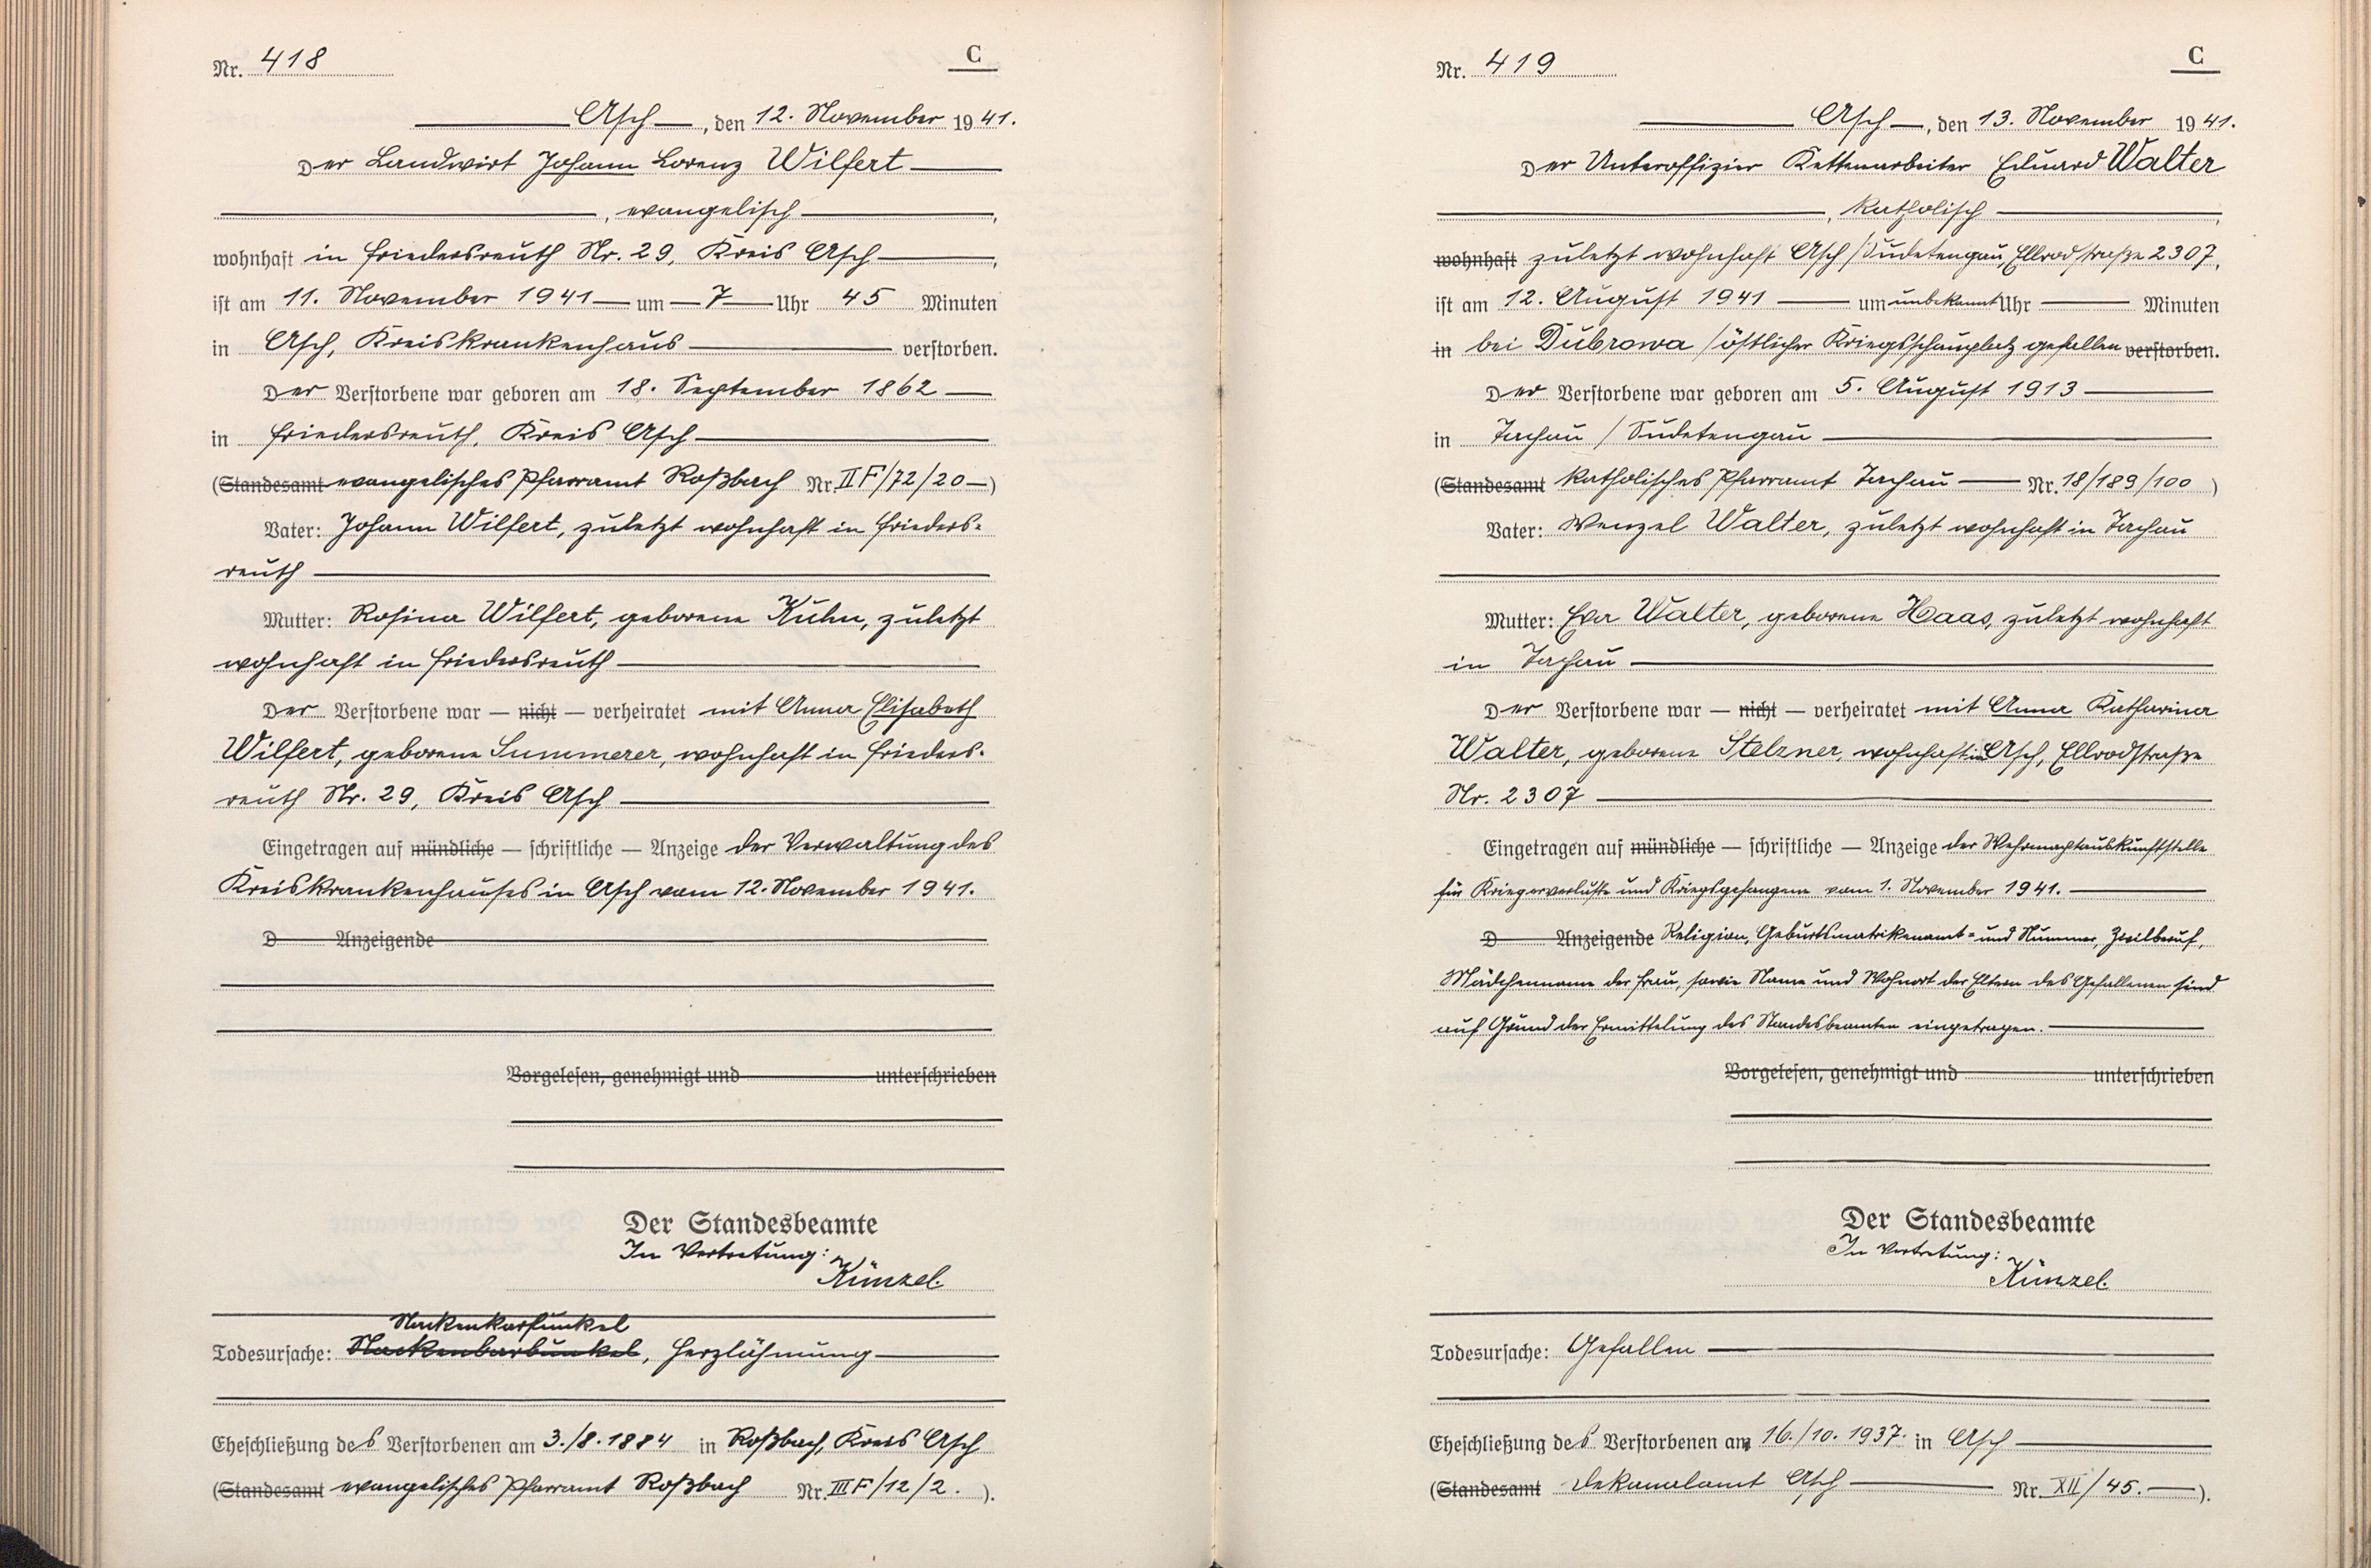 Nr. 418
C
Asch, den 12. November 1941.
Der Landwirt Johann Lorenz Wilfert
, evangelisch,
wohnhaft in Friedersreuth Nr. 29, Kreis Asch,
ist am 11. November 1941 um 7 Uhr 45 Minuten
in Asch, Kreiskrankenhaus verstorben.
Der Verstorbene war geboren am 18. September 1862
in Friedersreuth, Kreis Asch
(Standesamt evangelisches Pfarramt Roßbach Nr. II F/72/20)
Vater: Johann Wilfert, zuletzt wohnhaft in Frieders-
reuth
Mutter: Rosina Wilfert, geborene Kühn, zuletzt
wohnhaft in Friedersreuth
Der Verstorbene war — nicht — verheiratet mit Anna Elisabeth
Wilfert, geborene Summerer, wohnhaft in Frieders-
reuth Nr. 29, Kreis Asch
Eingetragen auf mündliche — schriftliche — Anzeige der Verwaltung des
Kreiskrankenhauses in Asch vom 12. November 1941.
D Anzeigende
Vorgelesen, genehmigt und unterschrieben
Der Standesbeamte
In Vertretung:
Künzel.
Nackenkarfunkel
Todesursache: Nackenbarbunkel, Herzlähmung
Eheschließung des Verstorbenen am 3./8.1884 in Roßbach, Kreis Asch
(Standesamt evangelisches Pfarramt Roßbach Nr. III F/12/2.).
Nr. 419
C
Asch, den 13. November 1941.
Der Unteroffizier Kettenarbeiter Eduard Walter
, katholisch,
wohnhaft zuletzt wohnhaft Asch/Sudetengau, Ellrodstraße 2307,
ist am 12. August 1941 um unbekannt Uhr Minuten
in bei Dubrowa/östlicher Kriegsschauplatz gefallen verstorben.
Der Verstorbene war geboren am 5. August 1913
in Tachau / Sudetengau
(Standesamt katholisches Pfarramt Tachau Nr. 18/189/100)
Vater: Wenzel Walter, zuletzt wohnhaft in Tachau
Mutter: Eva Walter, geborene Haas, zuletzt wohnhaft
in Tachau
Der Verstorbene war — nicht — verheiratet mit Anna Katharina
Walter, geborene Stelzner, wohnhaft in Asch, Ellrodstraße
Nr. 2307
Eingetragen auf mündliche — schriftliche — Anzeige der Wehrmachtauskunftstelle
für Kriegerverluste und Kriegsgefangene vom 1. November 1941.
D Anzeigende Religion, Geburtsmatrikenamt- und Nummer, Zivilberuf,
Mädchenname der Frau, sowie Name und Wohnort der Eltern des Gefallenen sind
auf Grund der Ermittelung des Standesbeamten eingetragen.
Vorgelesen, genehmigt und unterschrieben
Der Standesbeamte
In Vertretung:
Künzel.
Todesursache: Gefallen
Eheschließung des Verstorbenen am 16./10. 1937. in Asch
(Standesamt Dekanalamt Asch Nr. XII/45.).